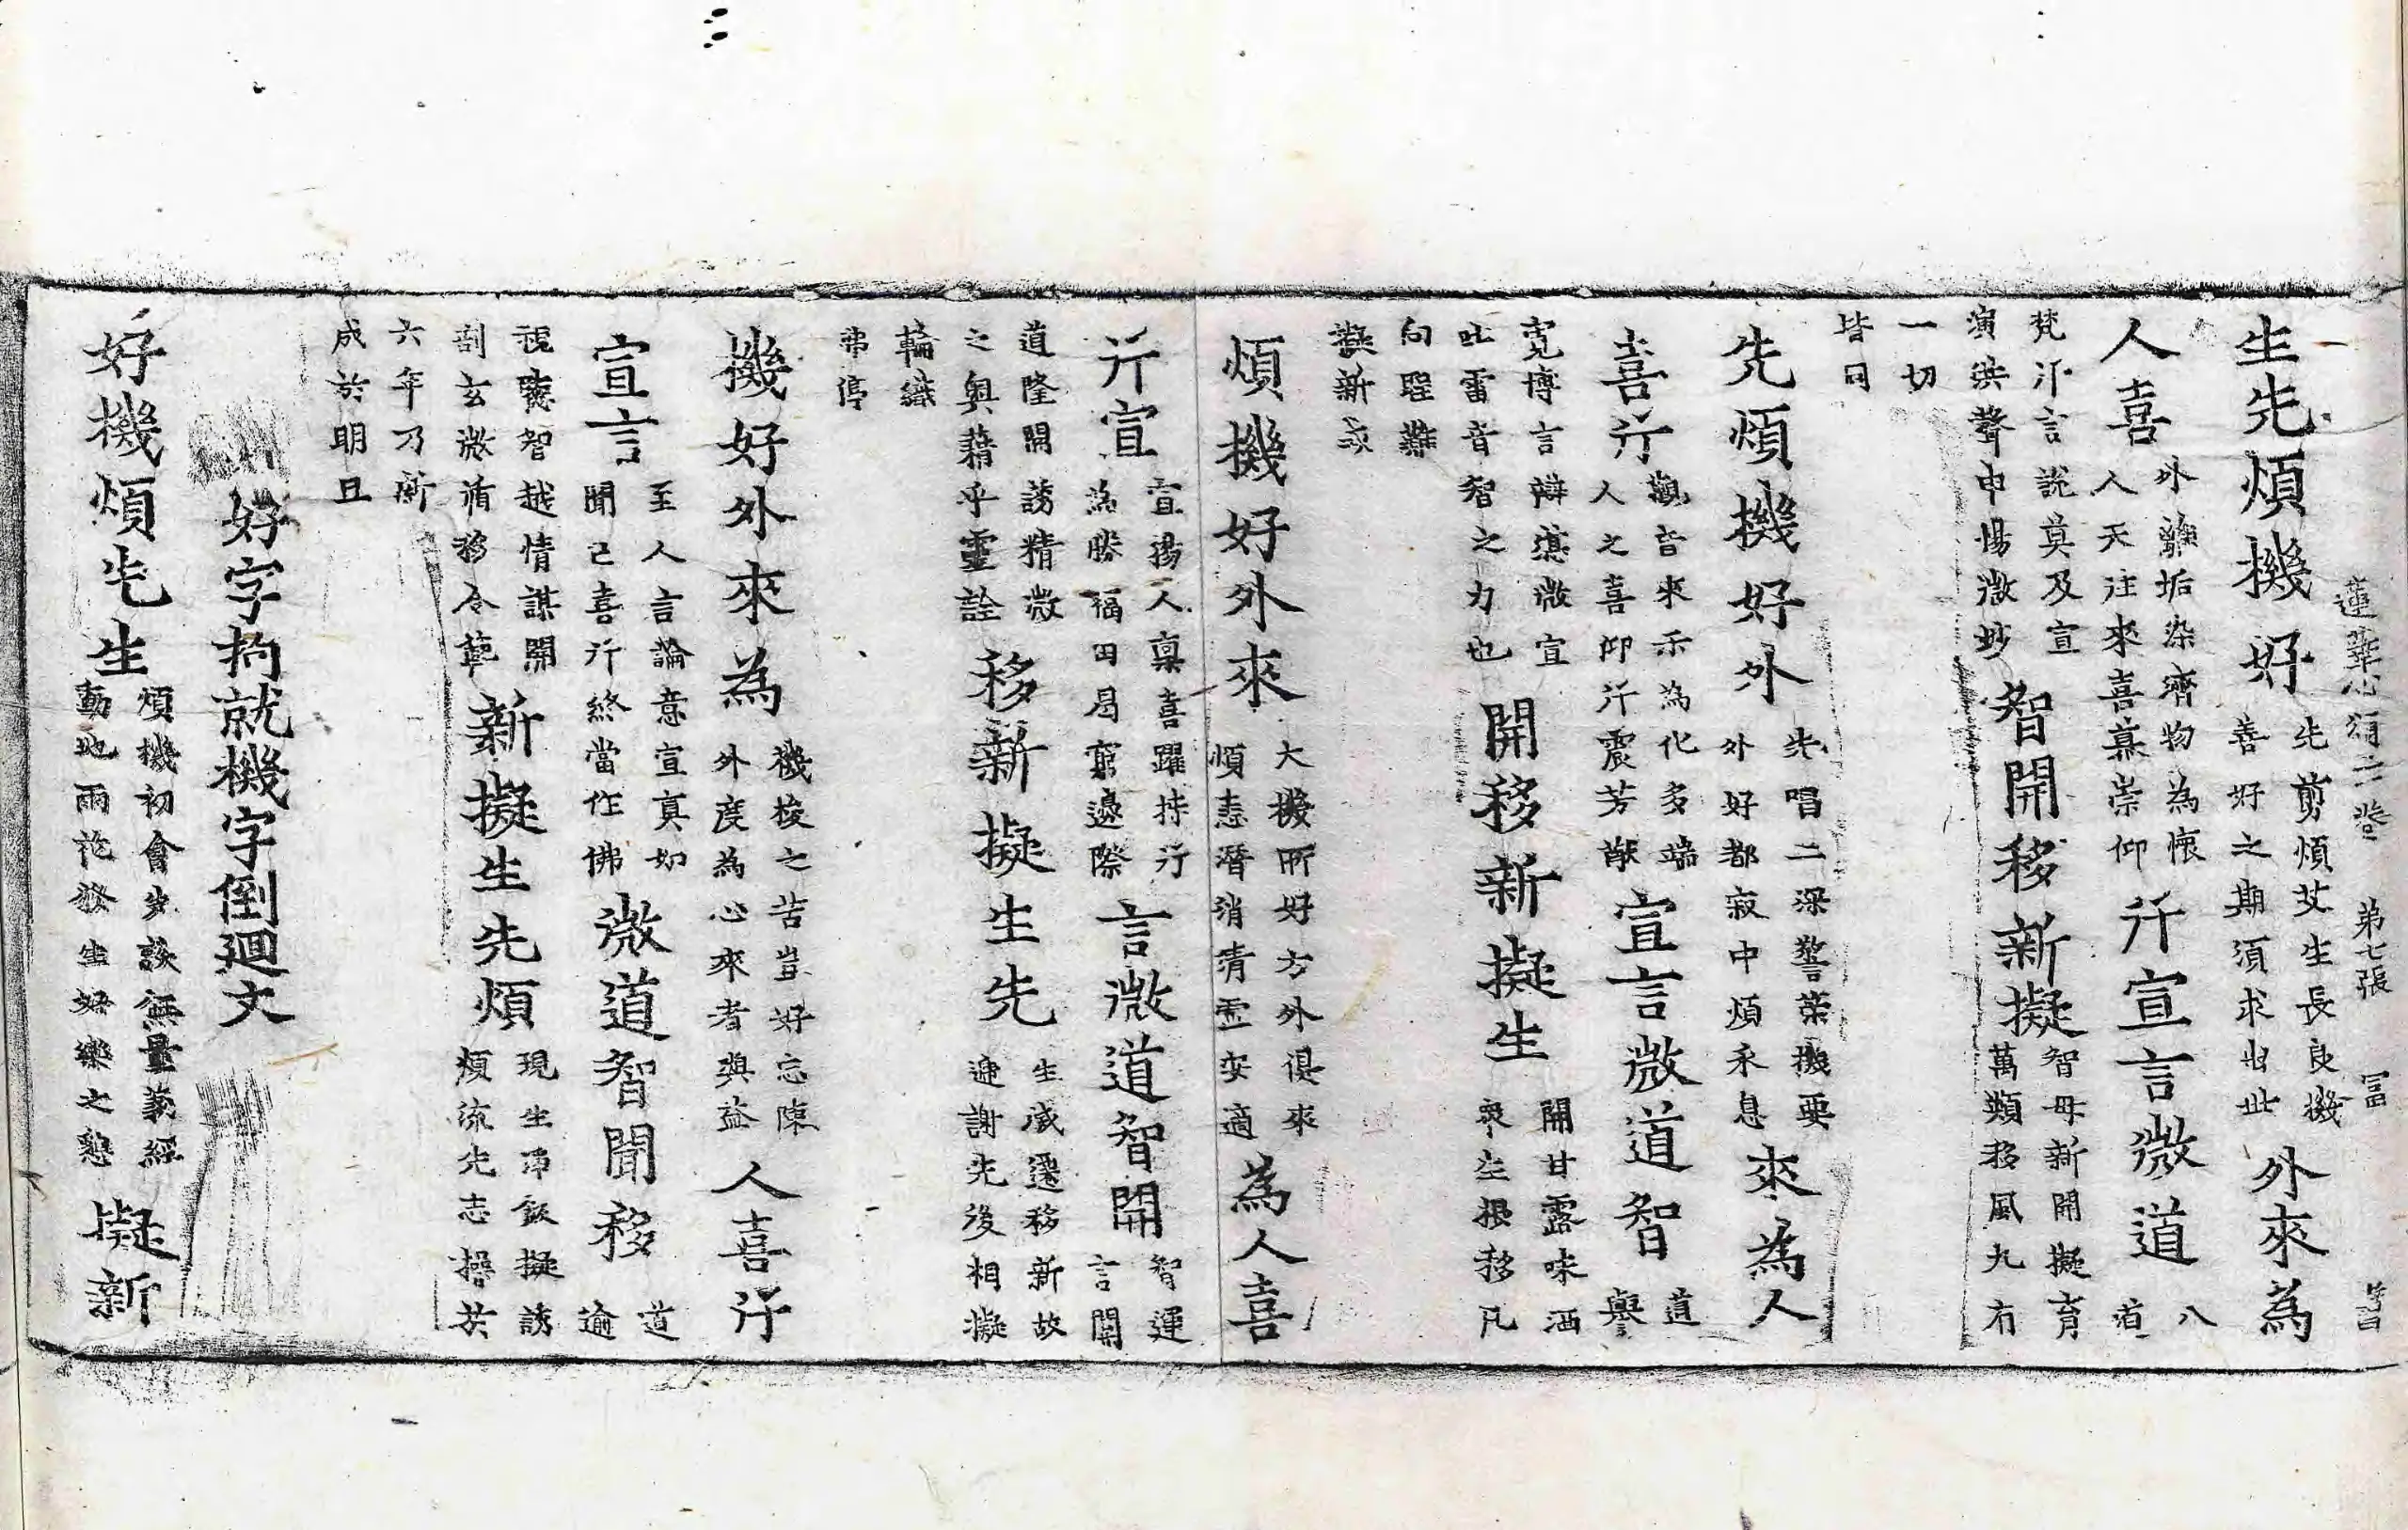 蓮華心頌二卷 第七張 冨
生先煩機好 先剪煩艾生長良機 善好之期須求出此 外來為
人喜 外離垢染濟物為懷 人天往來喜慕崇仰 行宣言微道 八
梵行言説莫及宣
演洪聲申暢微妙 智開移新擬 智母新開擬育 萬類移風九有
一切
皆同
先煩機好外 先唱二深警策機要 外好都寂中煩永息 來為人
喜行 觀音來示為化多端 人之喜仰行震芳猷 宣言微道智 道譽
寛博言辯湛微宣
吐雷音智之力也 開移新擬生 開甘露味洒 衆生根移凡
向聖難
煩機好外來 大機所好方外侵來 煩恚潛消清虛安適 為人喜
行宣 宣揚人稟喜躍持行 為勝福田曷窮邊際 言微道智開 智運 言開
道隆開誘精微
之奥藉乎靈詮 移新擬生先 生滅遷移新故 遞謝先後相擬
輪織
弗停
機好外來為 機梭之苦豈好忘陳 外度為心來者與益 人喜行
宣言 至人言論意宣真如 聞已喜行終當作佛 微道智開移 道逾
視聽智越情謀開
剖玄微循移令範 新擬生先煩 現生淨飯擬誘 煩流先志操英
六年乃新
成於明旦
好字拘就機字倒廻文
好機煩先生 煩機初會先談無量義經 動地雨花發生好樂之懇 擬新